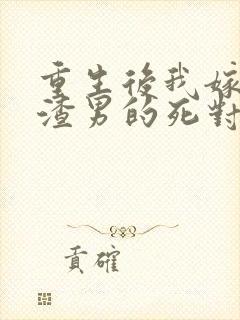 重生後我嫁
渣男的死對
貢確